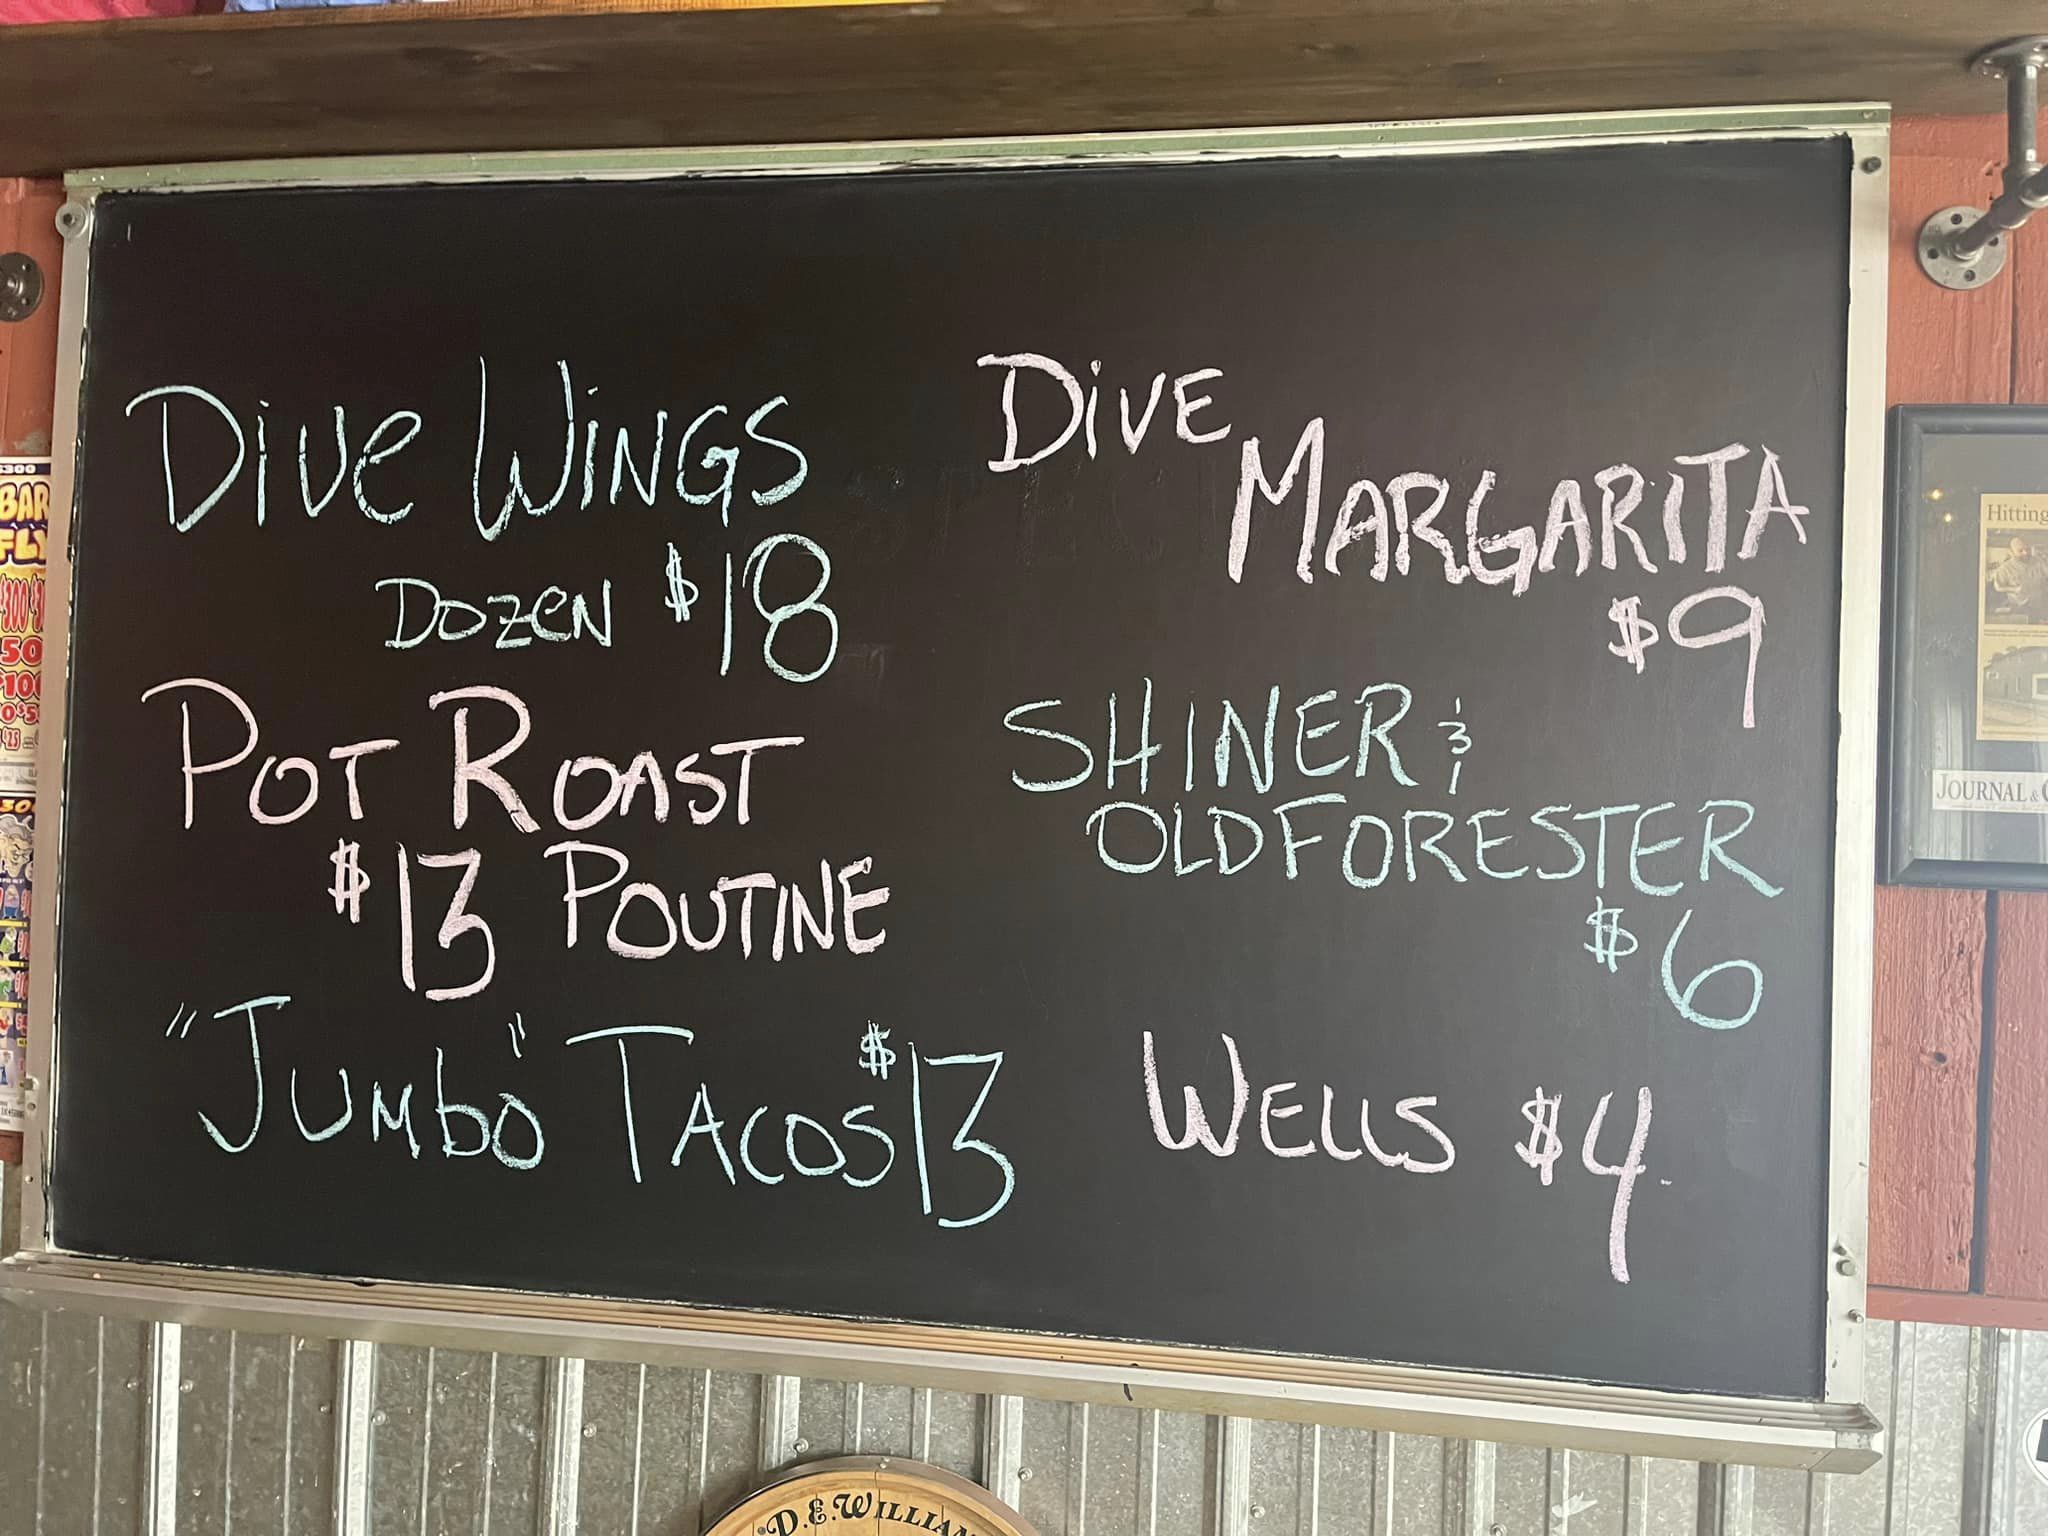 Dive Wings
Dozen $18
Pot Roast
$13 Poutine
"Jumbo" Tacos $13
Dive
Margarita
$9
SHINER &
OLD FORESTER
$6
Wells $4
$300
BAR
FLY
50
Hitting
JOURNAL &
D.E. WILLIAM